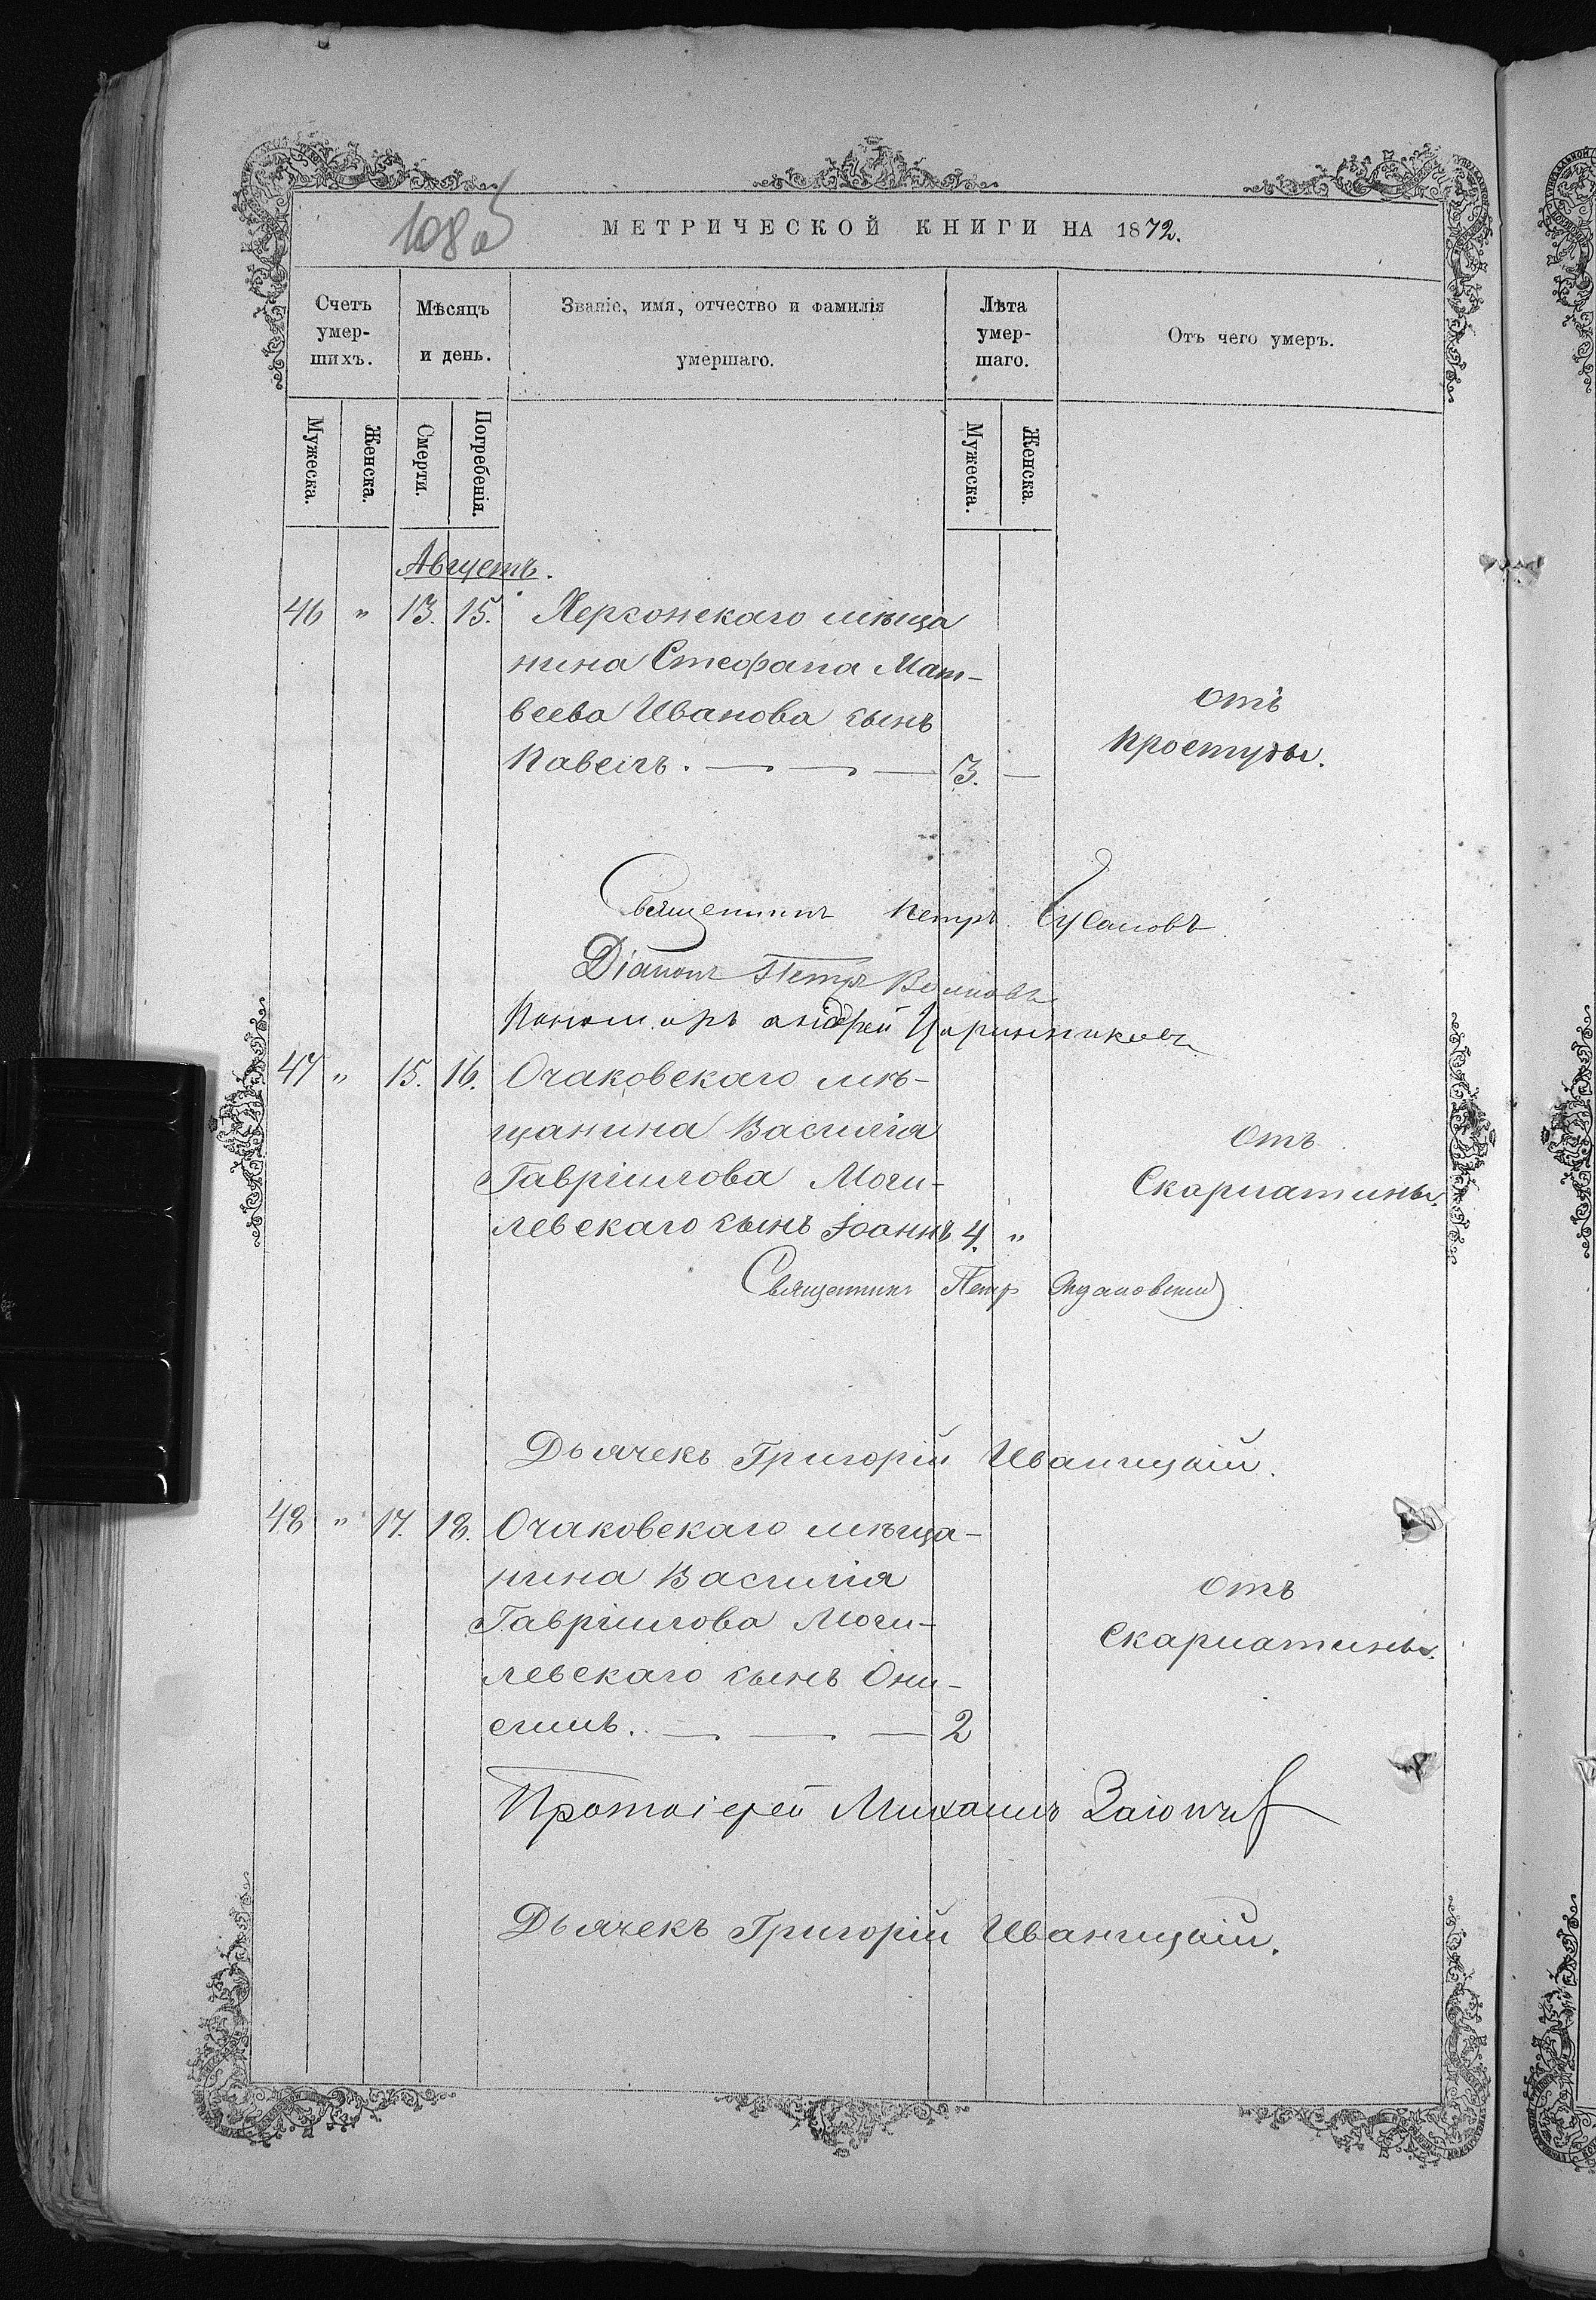 108 об
МЕТРИЧЕСКОЙ КНИГИ НА 1872.
Счетъ умер- шихъ.
Мѣсяцъ и день.
Званіе, имя, отчество и фамилія умершаго.
Лѣта умер- шаго.
Отъ чего умеръ.
Мужеска.
Женска.
Смерти.
Погребенія.
Мужеска.
Женска.
Августъ.
46 " 13. 15. Херсонскаго мѣща
нина Стефана Мат-
веева Иванова сынъ
Павелъ. — — — 3. —
отъ
простуды.
Священникъ Петръ
Діаконъ Петръ
Пономарь Андрей
47 " 15. 16. Очаковскаго мѣ-
щанина Василія
Гавріилова Моги-
левскаго сынъ Іоаннъ 4. "
отъ
Скарлатины.
Священникъ Петръ
Дьячекъ Григорій Иваницкій.
48 " 17. 18. Очаковскаго мѣща-
нина Василія
Гавріилова Моги-
левскаго сынъ Они-
симъ. — — — 2
отъ
Скарлатины.
Протоіерей Михаилъ
Дьячекъ Григорій Иваницкій.